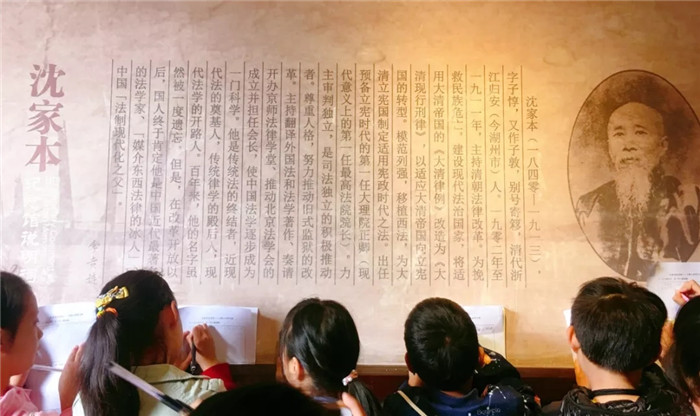 沈家本（一八四零—一九一三），
字子惇，又作子敦，别号寄簃，清代浙
江归安（今湖州市）人。一九零二年至
一九一一年，主持清朝法律改革。为挽
救民族危亡，建设现代法治国家，将适
用大清帝国的《大清律例》改造为《大
清现行刑律》，以适应大清帝国向立宪
国的转型。模范列强，移植西法，为大
清立宪国制定适用宪政时代之法。出任
预备立宪时代的第一任大理院正卿（现
代意义上的第一任最高法院院长），力
主审判独立，是司法独立的积极推动
者。尊重人格，努力推动旧式监狱的改
革。主持翻译外国法和法学著作，奏请
开办京师法律学堂，推动北京法学会的
成立并担任会长，使中国法学逐步成为
一门科学。他是传统法的终结者，近现
代法的奠基人，传统律学的殿后人，现
代法学的开路人。百年来，他的名字虽
然被一度遗忘，但是，在改革开放以
后，国人终于肯定他是中国近代最著
的法学家、「媒介东西法律的冰人」、
中国「法制现代化之父」。
沈家本